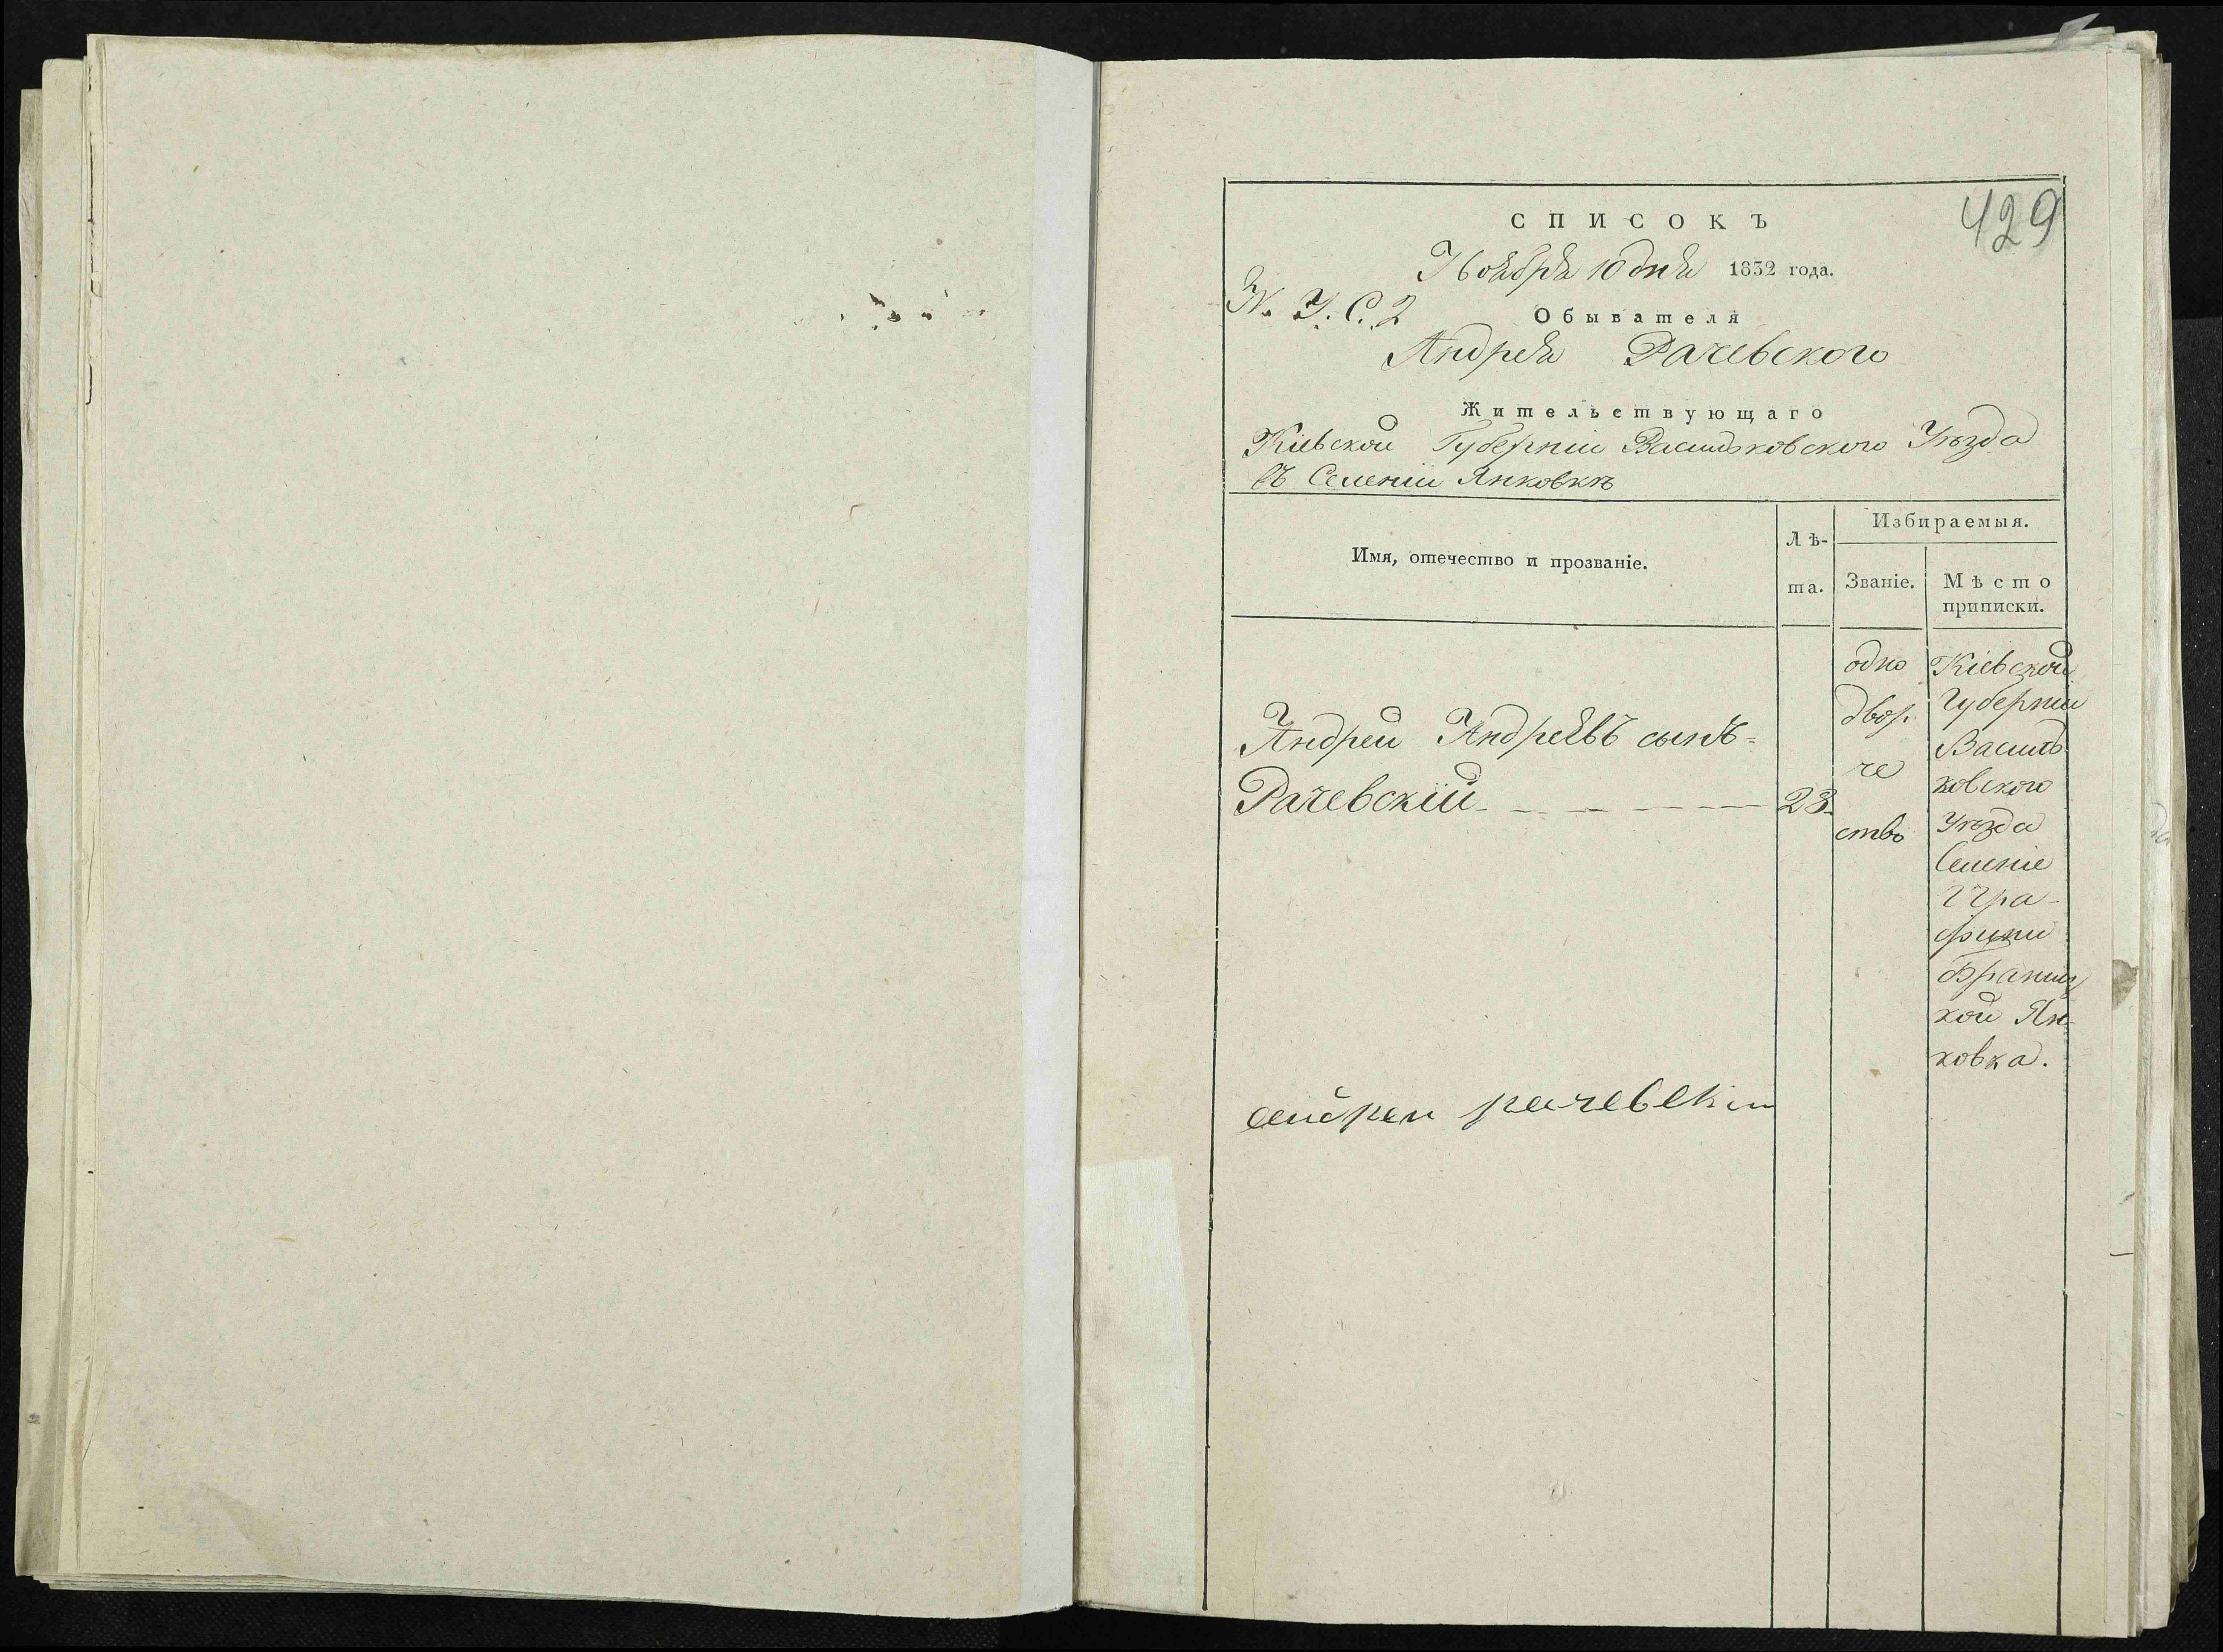 429
СПИСОКЪ
Ноября 10 дня 1832 года.
N. У. С. 2
Обывателя
Андрея Рачевского
Жительствующаго
Кіевской Губерніи Васильковского Уѣзда
въ Селеніи Янковкѣ
Имя, отечество и прозваніе.
Лѣ-
та.
Избираемыя.
Званіе.
Мѣсто
приписки.
Андрей Андреевъ сынъ
Рачевскій
23
одно
двор
че
ство
Кіевской
Губерніи
Василь
ковского
Уѣзда
Селеніе
Гра-
фини
Браниц
кой Ян-
ковка.
андрей рачевскій